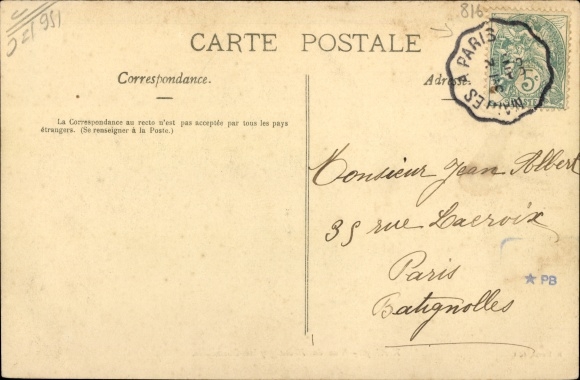 816
CARTE POSTALE
Correspondance.
Adresse.
La Correspondance au recto n'est pas acceptée par tous les pays
étrangers. (Se renseigner à la Poste.)
A PARIS
5c
Monsieur Jean Albert
35 rue Lacroix
Paris
Batignolles
★ PB